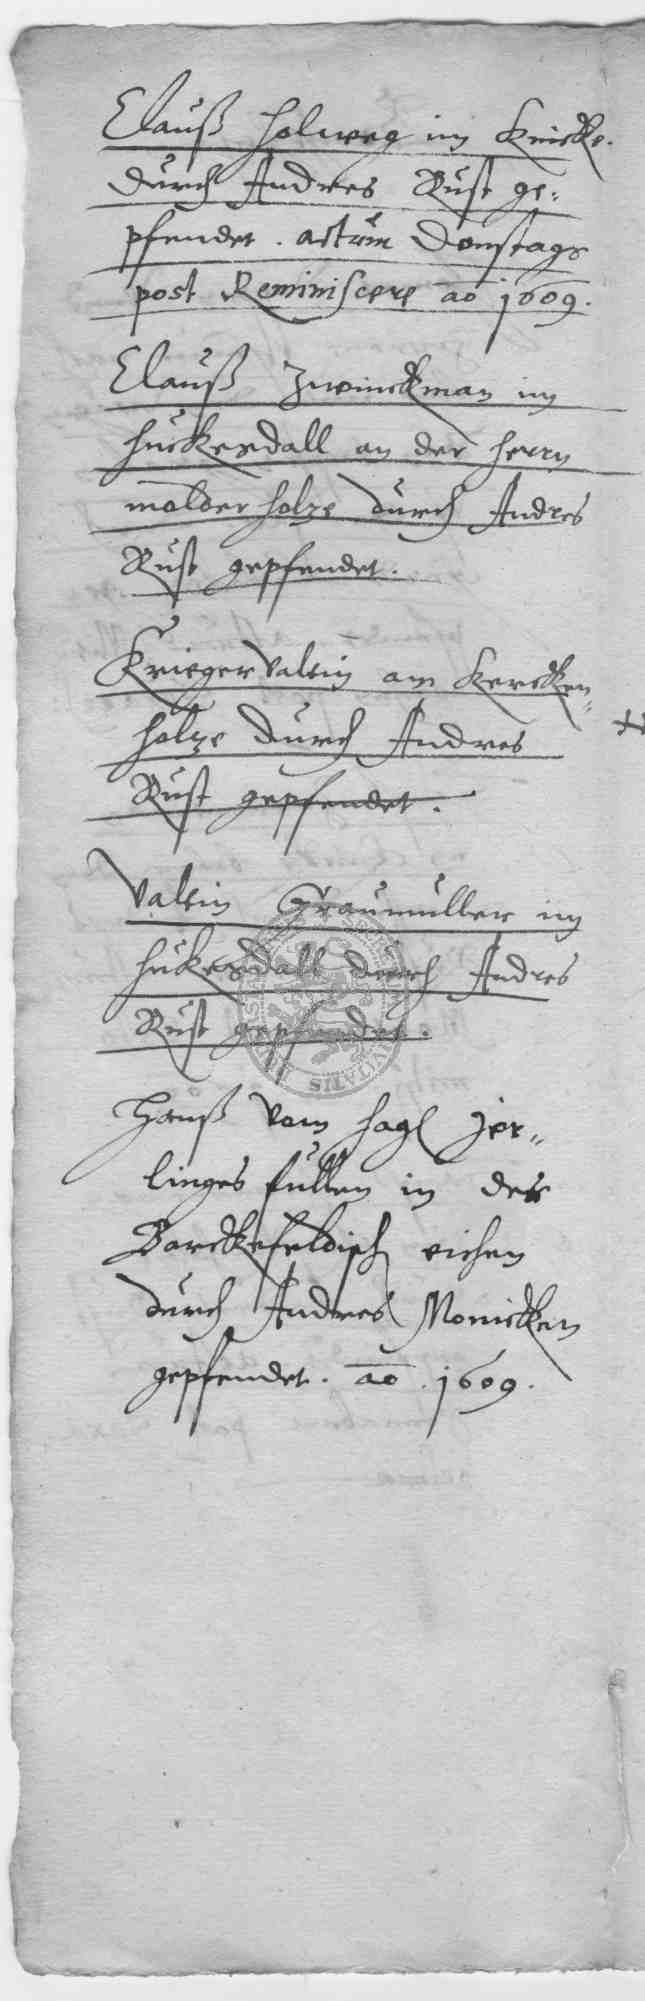 Clauß Holweg im Knicke.
durch Andres Rust ge-
pfendet. actum Donstags
post Reminiscere ao 1609.
Clauß Zwinckman im
Huckerdall an der Herrn
molder holze durch Andres
Rust gepfendet.
Krieger Valtin am Kercken-
holtze durch Andres
Rust gepfendet.
Valtin Graumuller im
Hukerdall durch Andres
Rust gepfendet.
Hanß vom Hagen Jer-
linges fullen in der
Barckefeldisch eichen
durch Andres Monicken
gepfendet. ao. 1609.